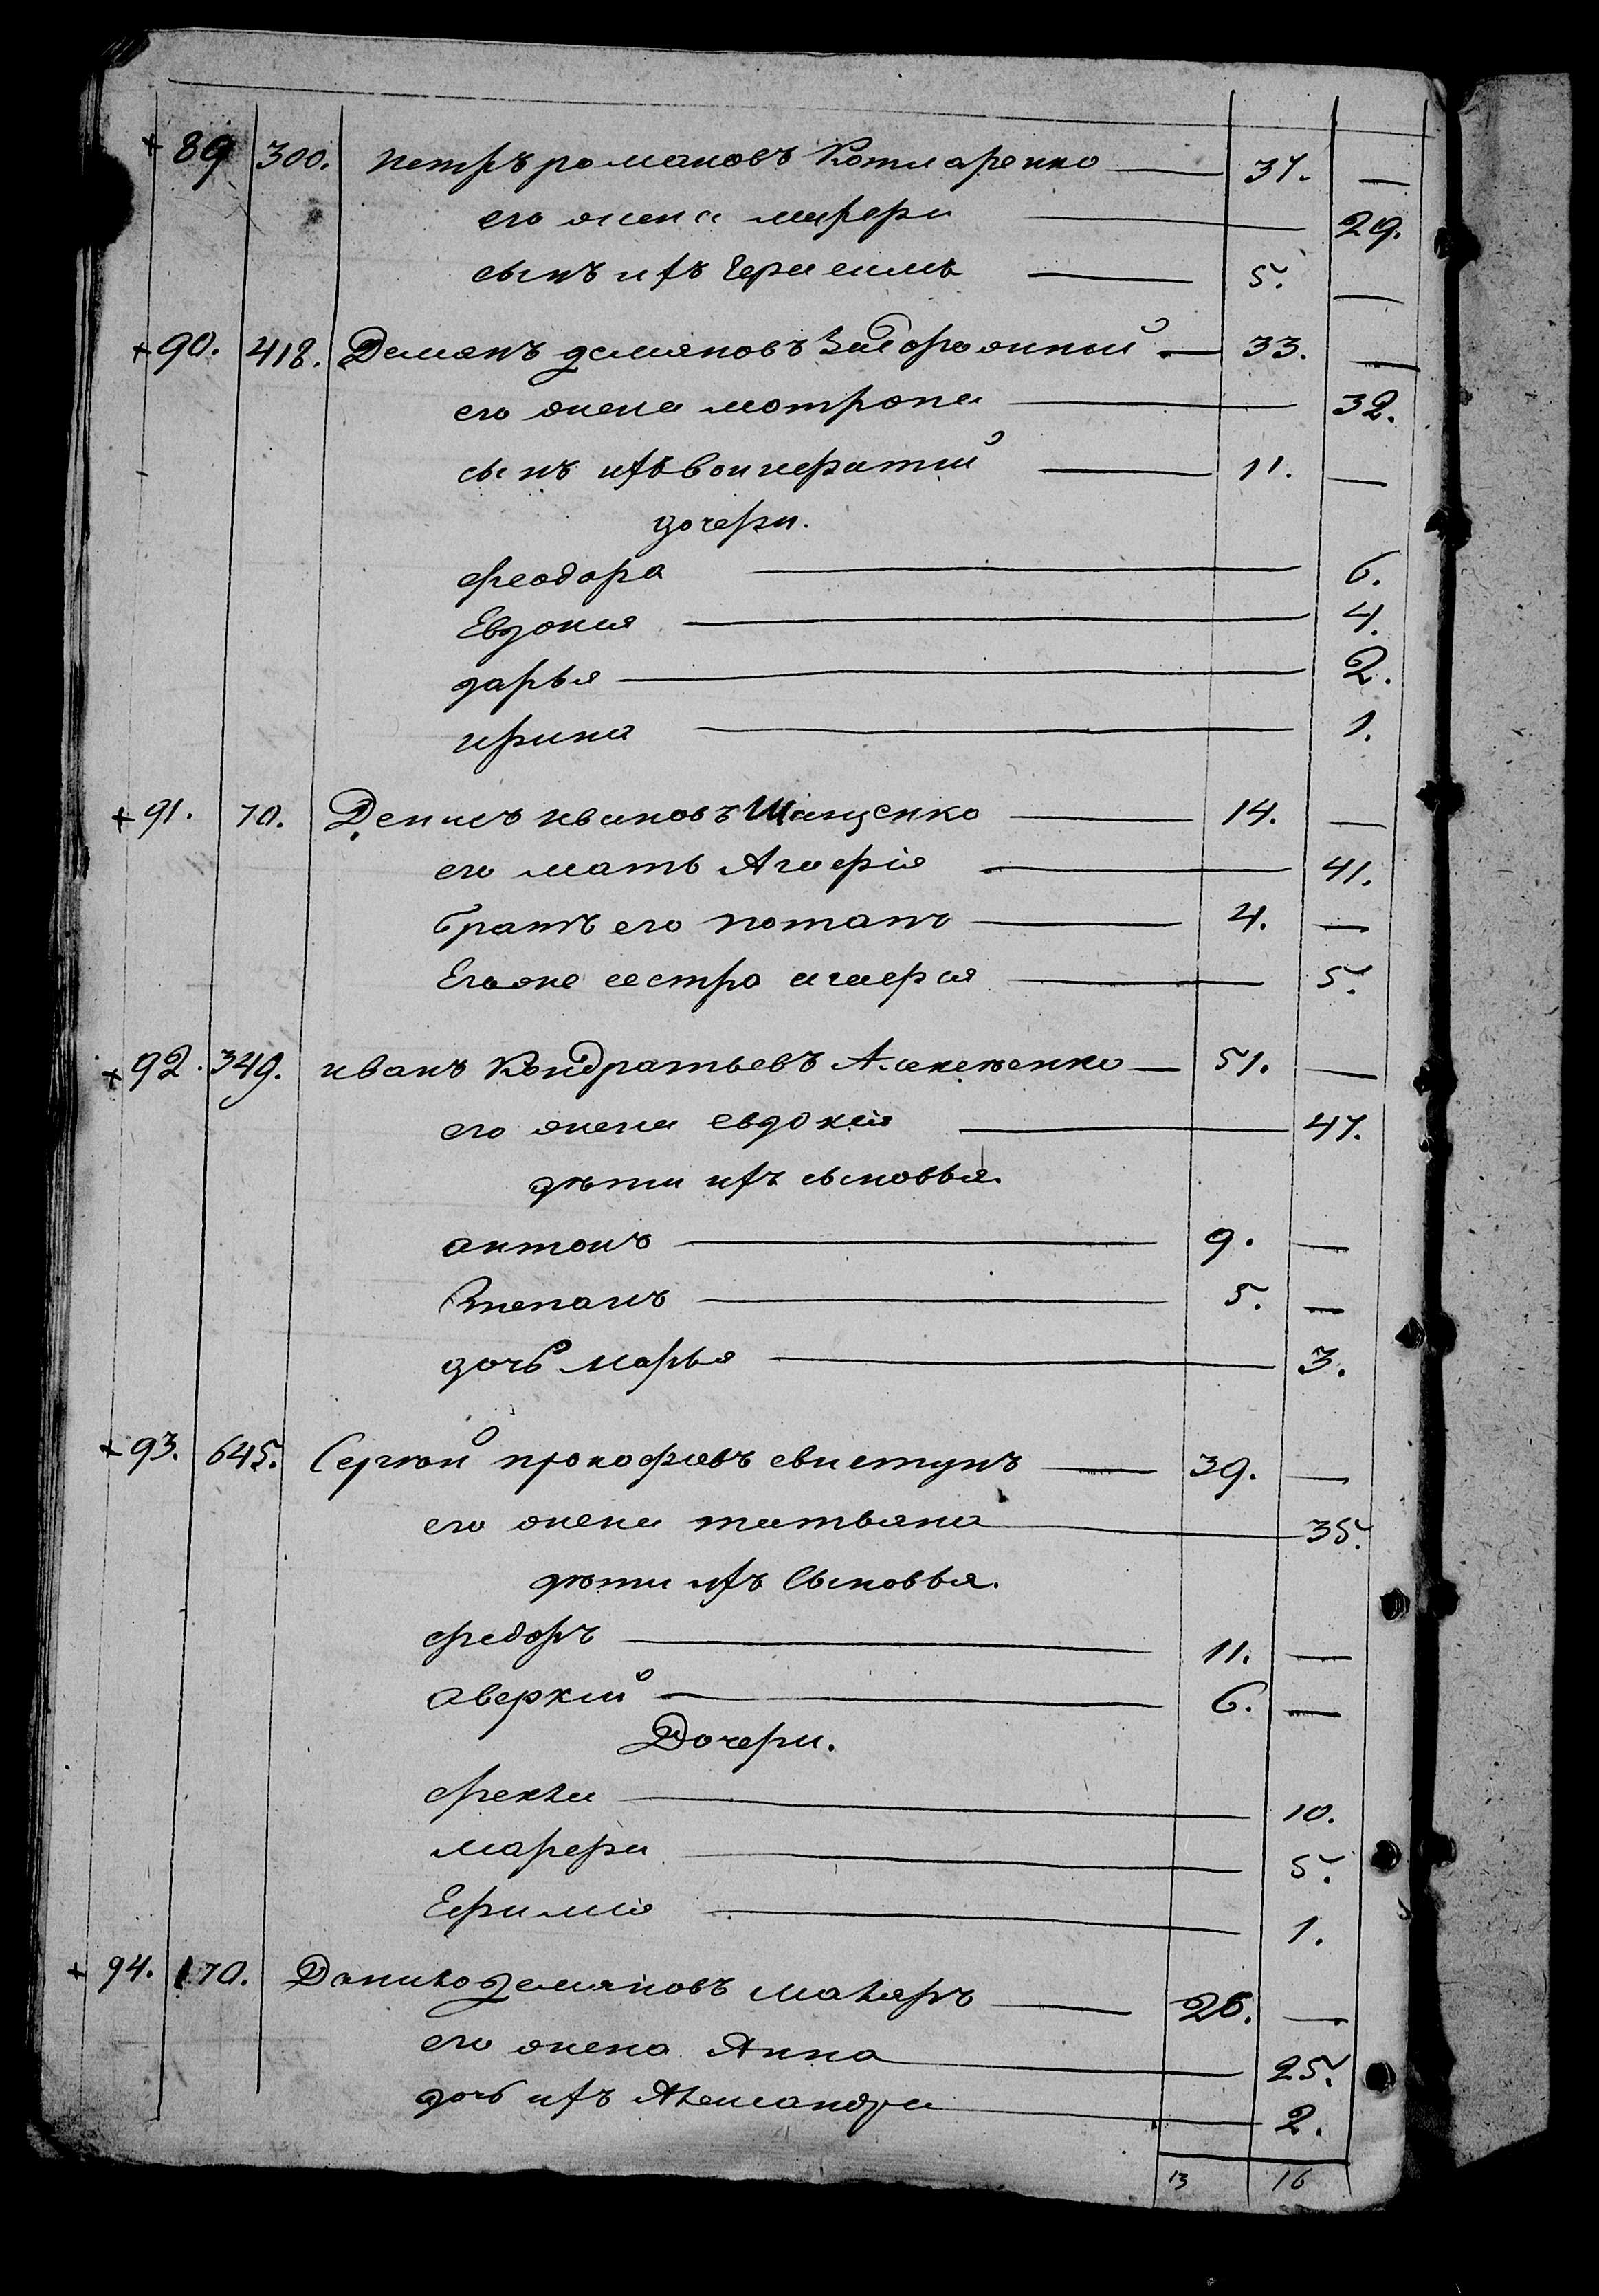 + 89 300. петръ романовъ Котляренко — 37. —
его жена марфа — 29.
сынъ ихъ Герасимъ — 5. —
+ 90. 418. Демянъ демяновъ Заборажный — 33. —
его жена мотрона — 32.
сынъ ихъ вонифатий — 11. —
дочери.
феодора — 6.
Евдокия — 4.
дарья — 2.
ирина — 1.
+ 91. 70. Денисъ ивановъ Ищенко — 14. —
его мать Агафія — 41.
братъ его потапъ — 4. —
Его же сестра агафия — 5.
+ 92. 349. иванъ Кондратьевъ — 51. —
его жена евдокия — 47.
дѣти ихъ сыновья.
антонъ — 9. —
Степанъ — 5. —
дочь марья — 3.
+ 93. 645. Сергѣй прокофиевъ свистунъ — 39. —
его жена татьяна — 35.
дѣти ихъ Сыновья.
федоръ — 11. —
аверкий — 6. —
Дочери.
фекла — 10.
марфа — 5.
Ефимія — 1.
+ 94. 170. Данило Демяновъ маляръ — 26. —
его жена Анна — 25.
дочь ихъ Александра — 2.
13 16